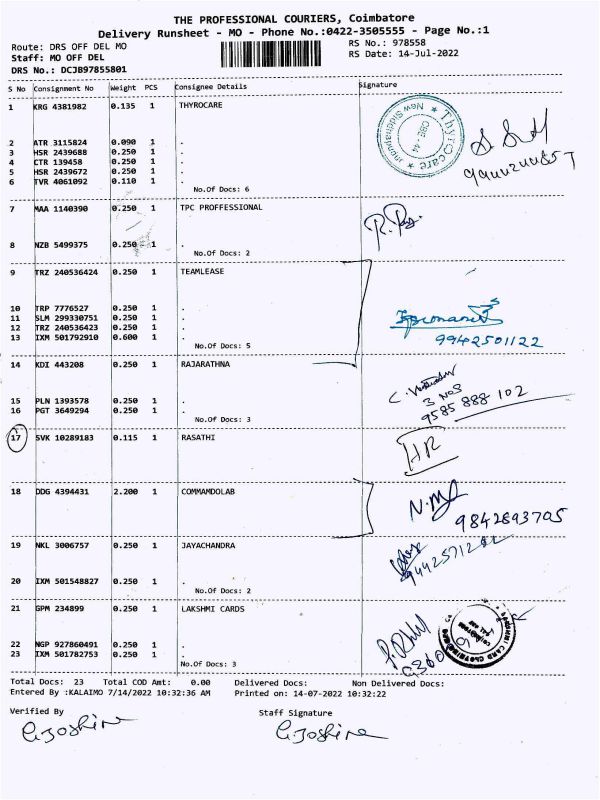 THE PROFESSIONAL COURIERS, Coimbatore
Delivery Runsheet - MO - Phone No.:0422-3505555 - Page No.:1
Route: DRS OFF DEL MO
RS No.: 978558
Staff: MO OFF DEL
RS Date: 14-Jul-2022
DRS No.: DCJB97855801
S No Consignment No Weight PCS Consignee Details Signature
1 KRG 4381982 0.135 1 THYROCARE
Thyrocare
CBE-44
2 ATR 3115824 0.090 1 .
3 HSR 2439688 0.250 1 .
4 CTR 139458 0.250 1 .
5 HSR 2439672 0.250 1 .
6 TVR 4061092 0.110 1 .
No.Of Docs: 6
7 MAA 1140390 0.250 1 TPC PROFFESSIONAL
8 NZB 5499375 0.250 1 .
No.Of Docs: 2
9 TRZ 240536424 0.250 1 TEAMLEASE
10 TRP 7776527 0.250 1 .
11 SLM 299330751 0.250 1 .
12 TRZ 240536423 0.250 1 .
13 IXM 501792910 0.600 1 .
9942501122
No.Of Docs: 5
14 KDI 443208 0.250 1 RAJARATHNA
15 PLN 1393578 0.250 1 .
3 Nos
16 PGT 3649294 0.250 1 .
9585 888 102
No.Of Docs: 3
17 SVK 10289183 0.115 1 RASATHI
HR
18 DDG 4394431 2.200 1 COMMAMDOLAB
9842893705
19 NKL 3006757 0.250 1 JAYACHANDRA
20 IXM 501548827 0.250 1 .
No.Of Docs: 2
21 GPM 234899 0.250 1 LAKSHMI CARDS
22 NGP 927860491 0.250 1 .
23 IXM 501782753 0.250 1 .
No.Of Docs: 3
Total Docs: 23 Total COD Amt: 0.00 Delivered Docs: Non Delivered Docs:
Entered By :KALAIMO 7/14/2022 10:32:36 AM Printed on: 14-07-2022 10:32:22
Verified By Staff Signature
G.Joshine G.Joshine